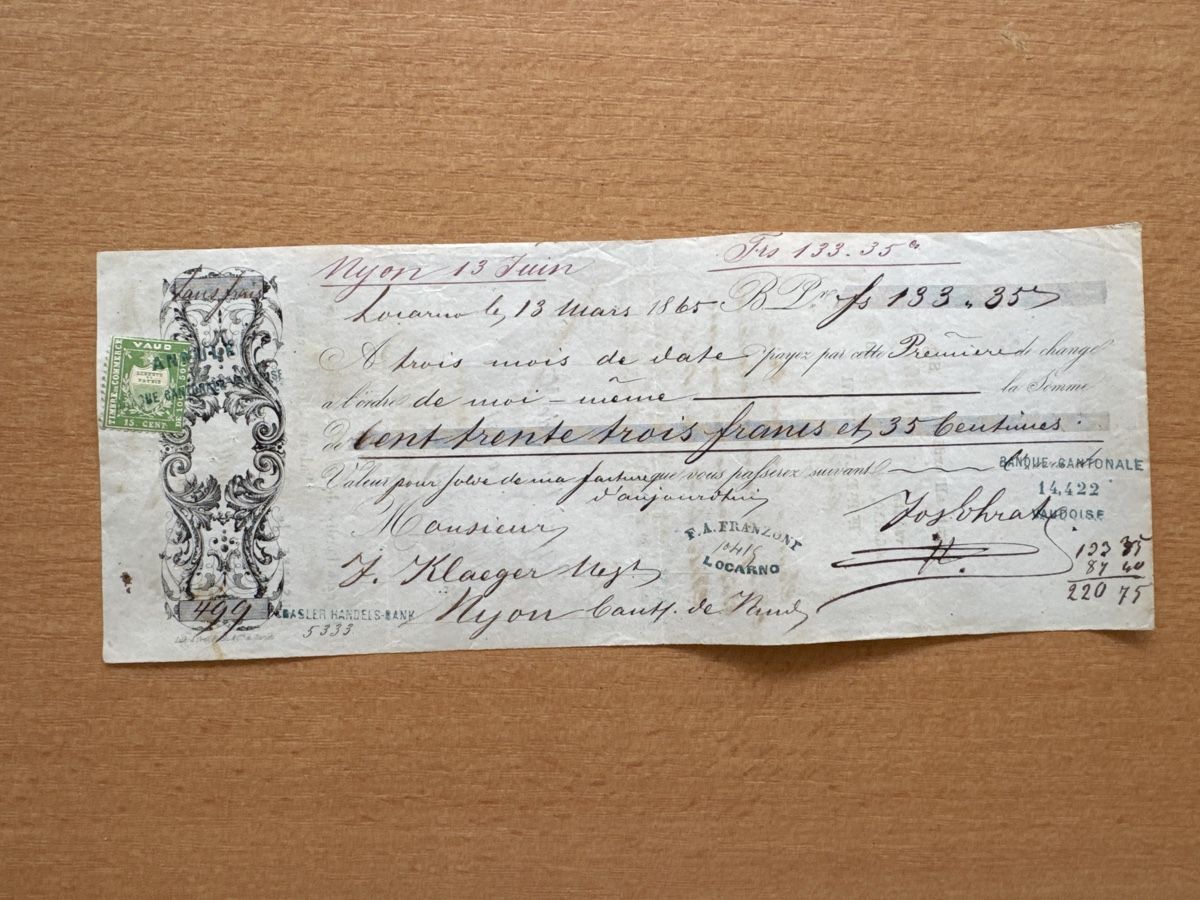 Nyon 13 Juin
Frs 133.35 cs
Sans frais
Locarno le 13 Mars 1865 B.P. fs 133.35
A trois mois de date payez par cette Première de change
a l'ordre de moi-même la Somme
de Cent trente trois francs et 35 Centimes.
Valeur pour solde de ma facture que vous passerez suivant
d'aujourd'hui
Monsieur
J. Klaeger Negt
Nyon Cant. de Vaud
VAUD
TIMBRE DE COMMERCE
LIBERTÉ
ET
PATRIE
15 CENT
F. A. FRANZONI
LOCARNO
BANQUE CANTONALE
14,422
VAUDOISE
133 35
87 40
220 75
499
BASLER HANDELS-BANK
5333